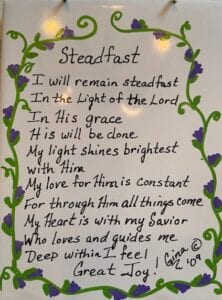 Steadfast
I will remain steadfast
In the Light of the Lord
In His grace
His will be done
My light shines brightest
with Him
My love for Him is constant
For through Him all things come
My Heart is with my Savior
Who loves and guides me
Deep within I feel
Great Joy!
Gina ©
2 '09